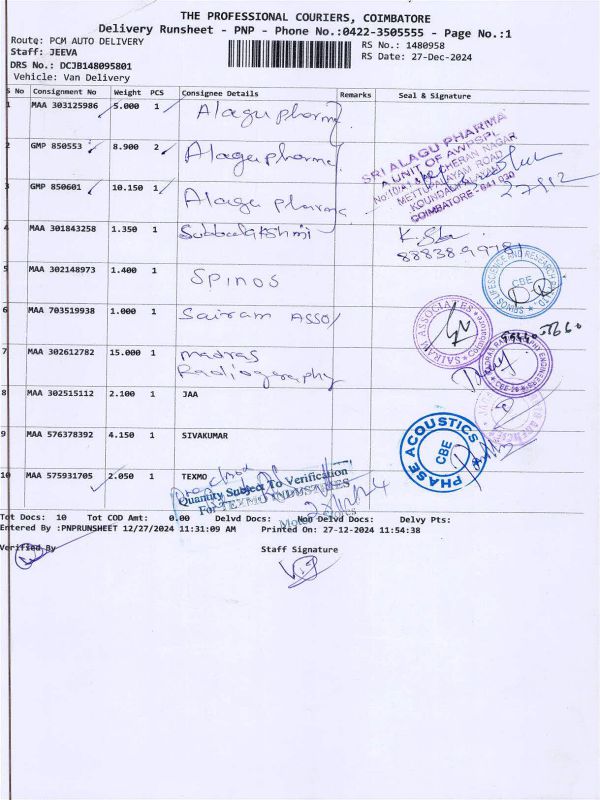 THE PROFESSIONAL COURIERS, COIMBATORE
Delivery Runsheet - PNP - Phone No.:0422-3505555 - Page No.:1
Route: PCM AUTO DELIVERY
RS No.: 1480958
Staff: JEEVA
RS Date: 27-Dec-2024
DRS No.: DCJB148095801
Vehicle: Van Delivery
S No Consignment No Weight PCS Consignee Details Remarks Seal & Signature
1 MAA 303125986 5.000 1 Alagu pharma
2 GMP 850553 8.900 2 Alagu pharma
3 GMP 850601 10.150 1 Alagu pharma
SRI ALAGU PHARMA
A UNIT OF AWPSPL
METTUPALAYAM ROAD
COIMBATORE - 641 030
4 MAA 301843258 1.350 1 Subbulakshmi
5 MAA 302148973 1.400 1 Spinos
SPINOS LIFE SCIENCE AND RESEARCH
CBE
6 MAA 703519938 1.000 1 Sairam Asso/
SAIRAM ASSOCIATES
Coimbatore
7 MAA 302612782 15.000 1 Madras
Radiography
8 MAA 302515112 2.100 1 JAA
9 MAA 576378392 4.150 1 SIVAKUMAR
PHASE ACOUSTICS
CBE
10 MAA 575931705 2.050 1 TEXMO
Quantity Subject To Verification
For TEXMO INDUSTRIES
Tot Docs: 10 Tot COD Amt: 0.00 Delvd Docs: Non Delvd Docs: Delvy Pts:
Entered By :PNPRUNSHEET 12/27/2024 11:31:09 AM Printed On: 27-12-2024 11:54:38
Verified By
Staff Signature